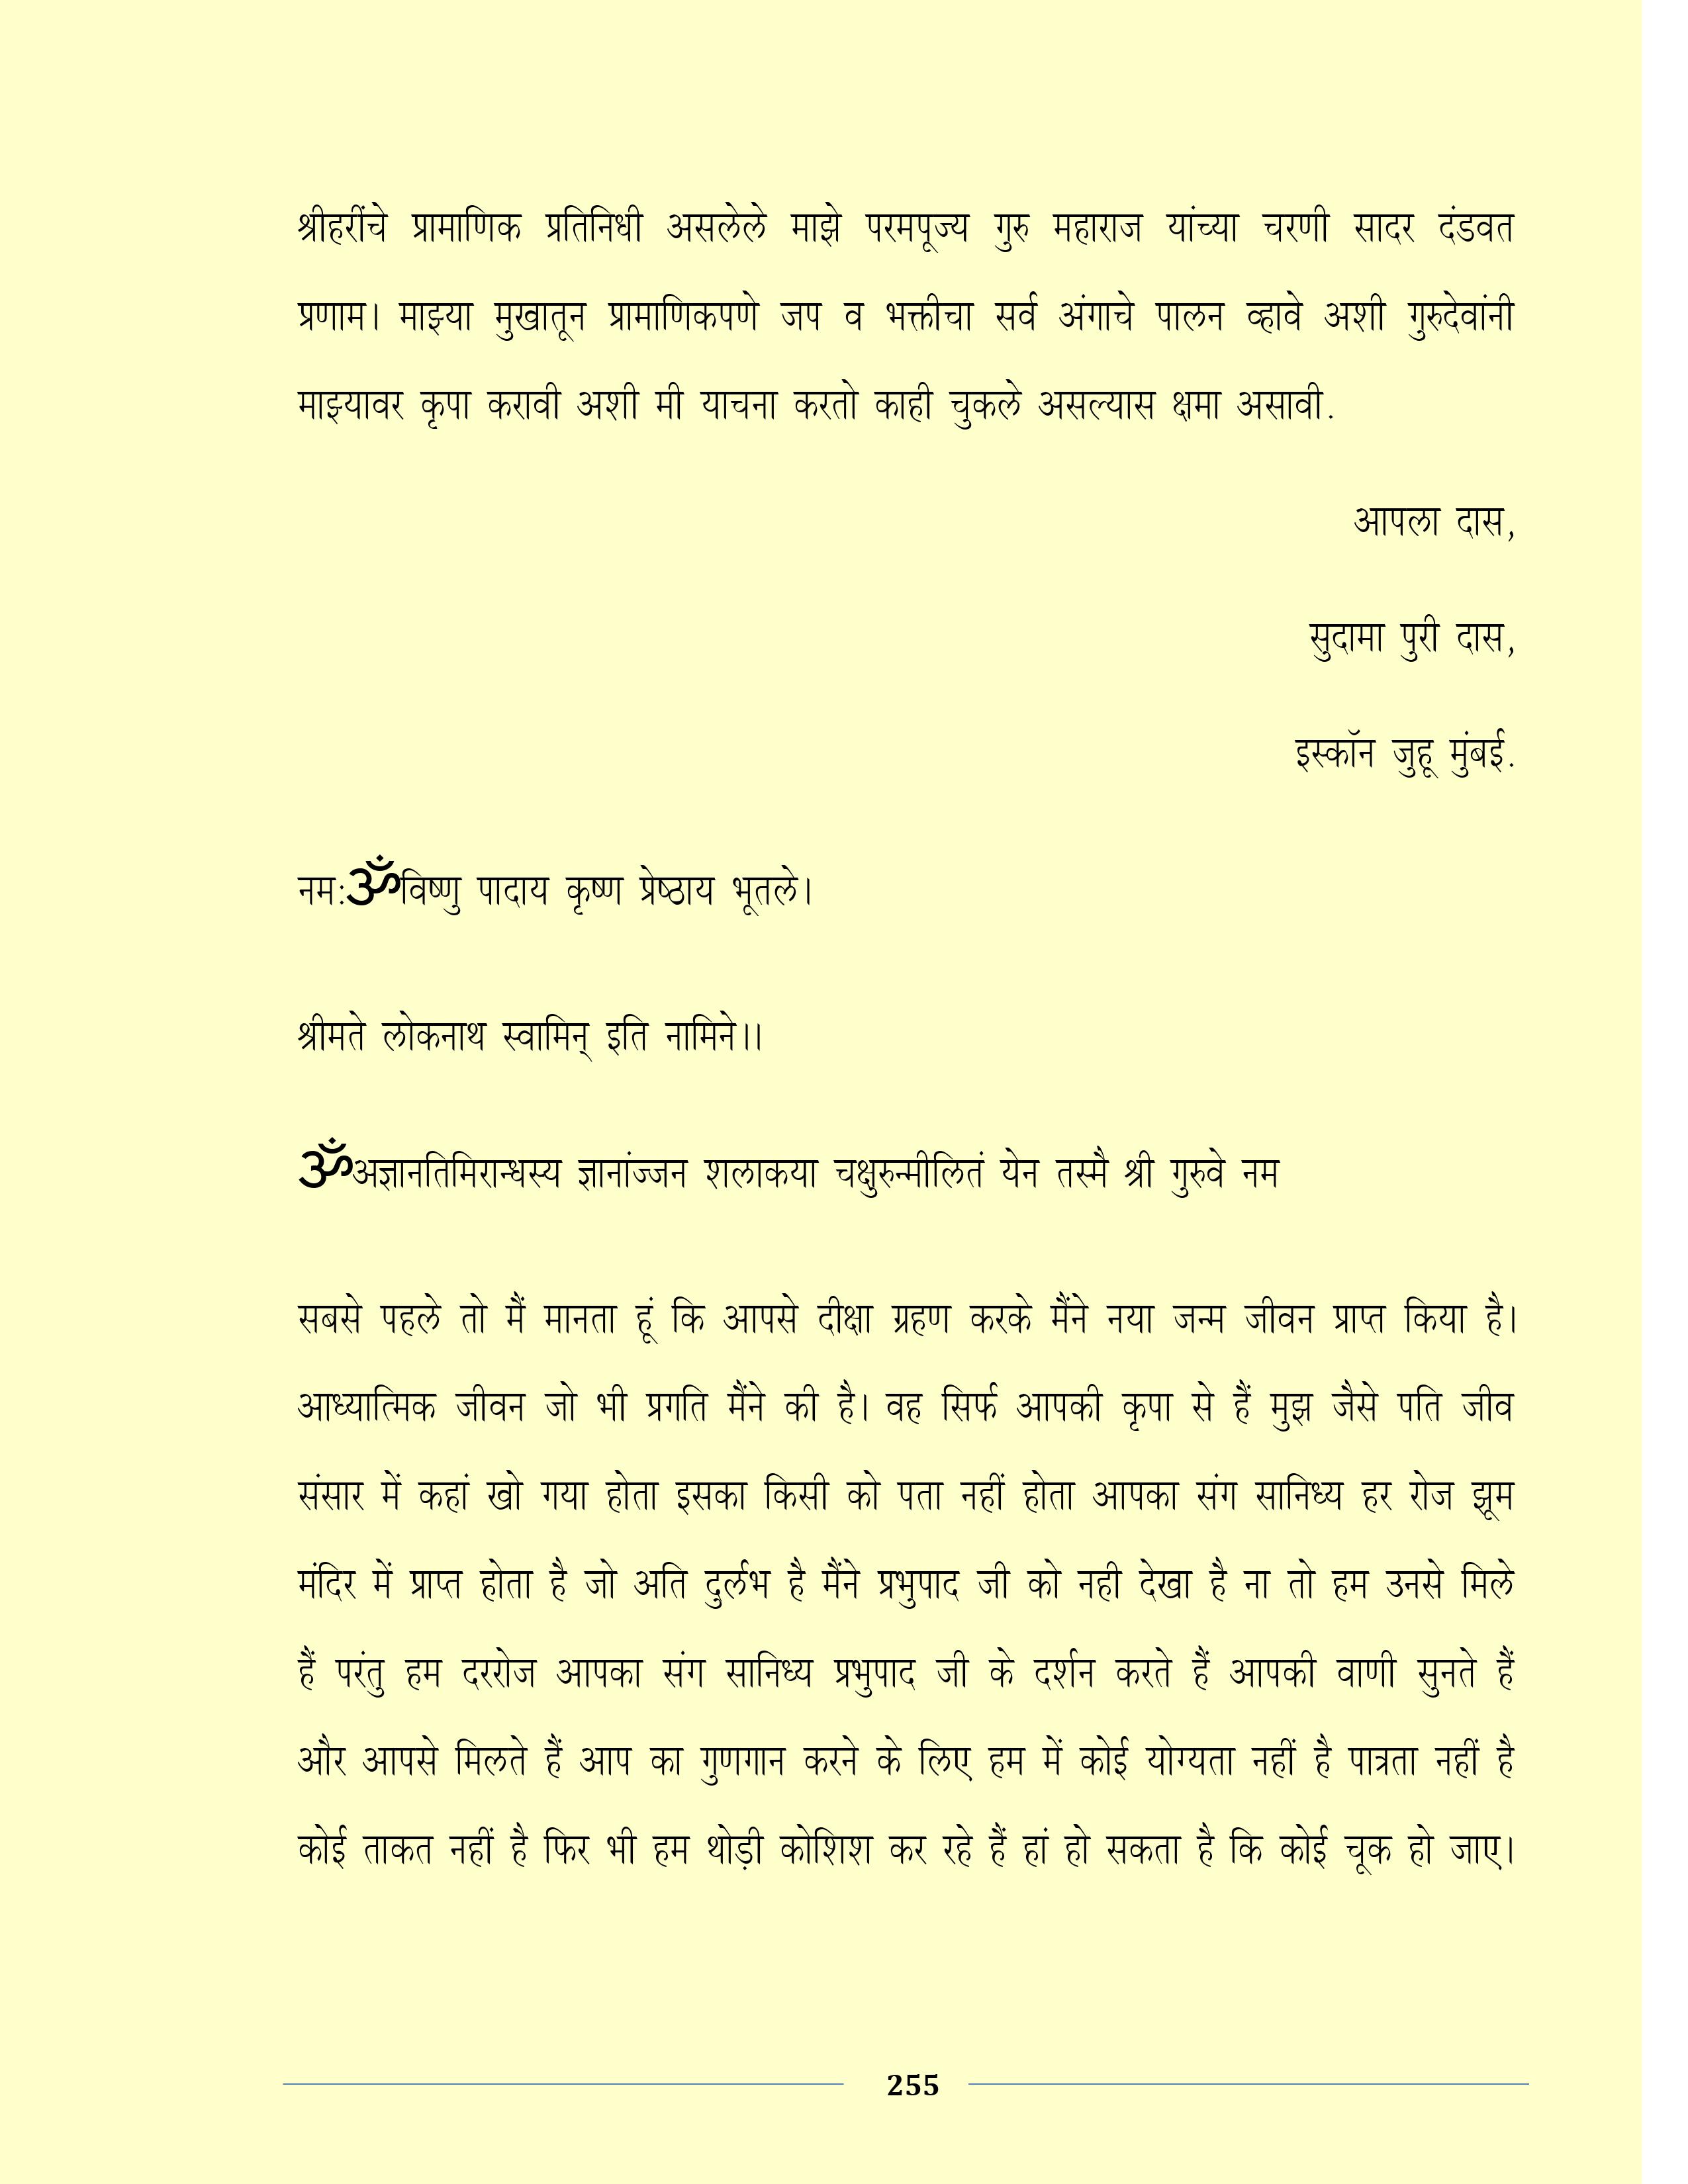 श्रीहरींचे प्रामाणिक प्रतिनिधी असलेले माझे परमपूज्य गुरु महाराज यांच्या चरणी सादर दंडवत
प्रणाम। माझ्या मुखातून प्रामाणिकपणे जप व भक्तीचा सर्व अंगाचे पालन व्हावे अशी गुरुदेवांनी
माझ्यावर कृपा करावी अशी मी याचना करतो काही चुकले असल्यास क्षमा असावी.
आपला दास,
सुदामा पुरी दास,
इस्कॉन जुहू मुंबई.
नमःॐविष्णु पादाय कृष्ण प्रेष्ठाय भूतले।
श्रीमते लोकनाथ स्वामिन् इति नामिने।।
ॐअज्ञानतिमिरान्धस्य ज्ञानांज्जन शलाकया चक्षुरुन्मीलितं येन तस्मै श्री गुरुवे नम
सबसे पहले तो मैं मानता हूं कि आपसे दीक्षा ग्रहण करके मैंने नया जन्म जीवन प्राप्त किया है।
आध्यात्मिक जीवन जो भी प्रगति मैंने की है। वह सिर्फ आपकी कृपा से हैं मुझ जैसे पति जीव
संसार में कहां खो गया होता इसका किसी को पता नहीं होता आपका संग सानिध्य हर रोज झूम
मंदिर में प्राप्त होता है जो अति दुर्लभ है मैंने प्रभुपाद जी को नही देखा है ना तो हम उनसे मिले
हैं परंतु हम दररोज आपका संग सानिध्य प्रभुपाद जी के दर्शन करते हैं आपकी वाणी सुनते हैं
और आपसे मिलते हैं आप का गुणगान करने के लिए हम में कोई योग्यता नहीं है पात्रता नहीं है
कोई ताकत नहीं है फिर भी हम थोड़ी कोशिश कर रहे हैं हां हो सकता है कि कोई चूक हो जाए।
255